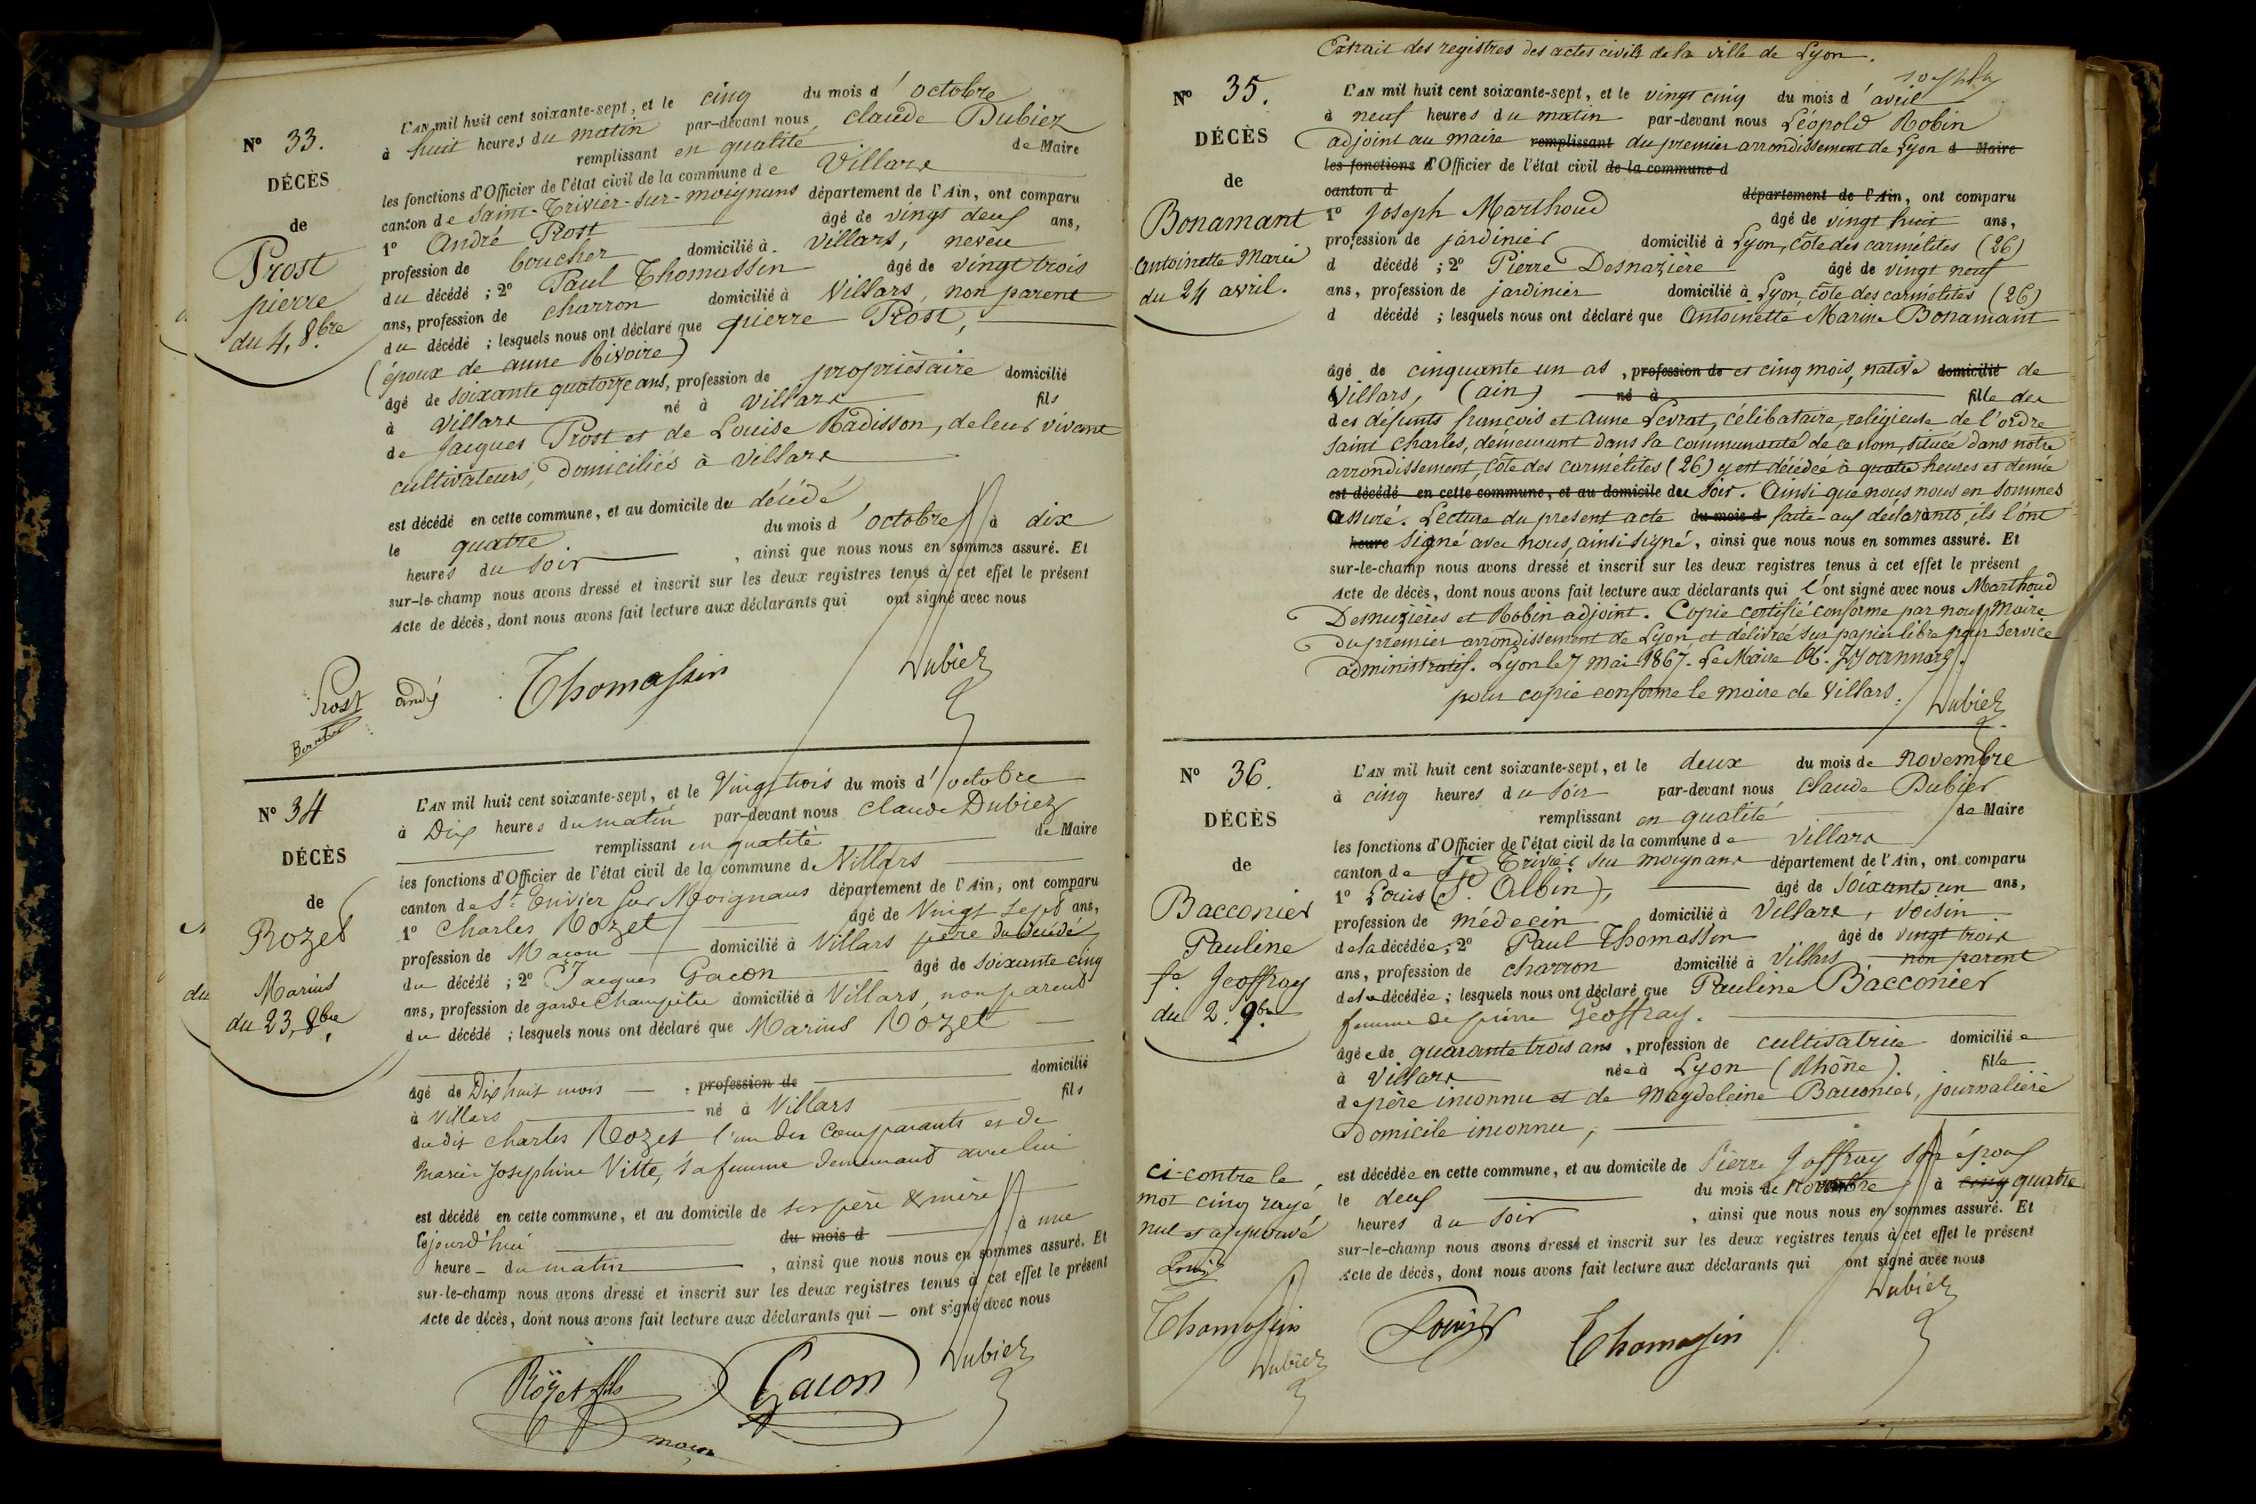 N° 33.
DÉCÈS
de
Prost
pierre
du 4, 8bre
L'AN mil huit cent soixante-sept, et le cinq du mois d'octobre
à huit heures du matin par-devant nous claude Dubiez
remplissant en qualité de Maire
les fonctions d'Officier de l'état civil de la commune de Villars
canton de Saint-Trivier-sur-moignans département de l'Ain, ont comparu
1° André Prost âgé de vingt deux ans,
profession de boucher domicilié à Villars, neveu
du décédé ; 2° Paul Thomassin âgé de vingt trois
ans, profession de charron domicilié à Villars, non parent
du décédé ; lesquels nous ont déclaré que pierre Prost,
(époux de anne Rivoire)
âgé de soixante quatorze ans, profession de propriétaire domicilié
à Villars né à Villars fils
de Jacques Prost et de Louise Radisson, de leur vivant
cultivateurs, domiciliés à Villars
est décédé en cette commune, et au domicile du décédé
le quatre du mois d'octobre à dix
heures du soir, ainsi que nous nous en sommes assuré. Et
sur-le-champ nous avons dressé et inscrit sur les deux registres tenus à cet effet le présent
Acte de décès, dont nous avons fait lecture aux déclarants qui ont signé avec nous
Prost andré Thomassin Dubiez
N° 34
DÉCÈS
de
Rozet
Marius
du 23, 8bre
L'AN mil huit cent soixante-sept, et le Vingt trois du mois d'octobre
à Dix heures du matin par-devant nous Claude Dubiez
remplissant en qualité de Maire
les fonctions d'Officier de l'état civil de la commune de Villars
canton de St Trivier sur Moignans département de l'Ain, ont comparu
1° Charles Rozet âgé de Vingt Sept ans,
profession de Maçon domicilié à Villars père du décédé
du décédé ; 2° Jacques Gacon âgé de soixante cinq
ans, profession de garde Champêtre domicilié à Villars, non parent
du décédé ; lesquels nous ont déclaré que Marius Rozet
domicilié
âgé de Dix huit mois, profession de
à Villars né à Villars fils
du dit Charles Rozet l'un des Comparants et de
Marie Josephine Vitte, sa femme demeurant avec lui
est décédé en cette commune, et au domicile de ses père & mère
Cejourd'hui du mois d à une
heure du matin, ainsi que nous nous en sommes assuré. Et
sur-le-champ nous avons dressé et inscrit sur les deux registres tenus à cet effet le présent
Acte de décès, dont nous avons fait lecture aux déclarants qui — ont signé avec nous
Rozet fils Gacon Dubiez
Extrait des registres des actes civils de la ville de Lyon.
N° 35.
DÉCÈS
de
Bonamant
Antoinette Marie
du 24 avril.
joseph
L'AN mil huit cent soixante-sept, et le vingt cinq du mois d'avril
à neuf heures du matin par-devant nous Léopold Robin
adjoint au maire remplissant du premier arrondissement de Lyon d Maire
les fonctions d'Officier de l'état civil de la commune d
canton d département de l'Ain, ont comparu
1° Joseph Marthoud âgé de vingt huit ans,
profession de jardinier domicilié à Lyon, côte des carmélites (26)
d décédé ; 2° Pierre Desnazière âgé de vingt neuf
ans, profession de jardinier domicilié à Lyon côte des carmélites (26)
d décédé ; lesquels nous ont déclaré que Antoinette Marie Bonamant
âgé de cinquante un as, profession de et cinq mois, native domicilié de
Villars, (ain) né à fille de
des défunts françois et anne Levrat, célibataire, religieuse de l'ordre
saint charles, demeurant dans la communauté de ce nom, située dans notre
arrondissement, côte des carmélites (26) y est décédée à quatre heures et demie
est décédé en cette commune, et au domicile du soir. Ainsi que nous nous en sommes
assuré. Lecture du present acte du mois d faite aux déclarants, ils l'ont
heure signé avec nous, ainsi signé, ainsi que nous nous en sommes assuré. Et
sur-le-champ nous avons dressé et inscrit sur les deux registres tenus à cet effet le présent
Acte de décès, dont nous avons fait lecture aux déclarants qui l'ont signé avec nous Marthoud
Desnuzières et Robin adjoint. Copie certifié conforme par nous Maire
du premier arrondissement de Lyon et délivrée sur papier libre pour Service
administratif. Lyon le 7 mai 1867. Le Maire
pour copie conforme le maire de Villars. Dubiez
N° 36.
DÉCÈS
de
Bacconier
Pauline
fe Geoffray
du 2. 9bre
L'AN mil huit cent soixante-sept, et le deux du mois de novembre
à cinq heures du soir par-devant nous Claude Dubiez
remplissant en qualité de Maire
les fonctions d'Officier de l'état civil de la commune de Villars
canton de St Trivier sur moignans département de l'Ain, ont comparu
1° Louis (St Albin), âgé de soixante un ans,
profession de médecin domicilié à Villars, voisin
de la décédée ; 2° Paul Thomassin âgé de vingt trois
ans, profession de charron domicilié à Villars non parent
de la décédée ; lesquels nous ont déclaré que Pauline Bacconier
femme de pierre Geoffray.
âgée de quarante trois ans, profession de cultivatrice domiciliée
à Villars née à Lyon (Rhône) fille
de père inconnu et de Magdeleine Bacconier, journalière
domicile inconnu,
est décédée en cette commune, et au domicile de Pierre Joffray son époux
le deux du mois de novembre à cinq quatre
heures du soir, ainsi que nous nous en sommes assuré. Et
sur-le-champ nous avons dressé et inscrit sur les deux registres tenus à cet effet le présent
Acte de décès, dont nous avons fait lecture aux déclarants qui ont signé avec nous
Louis Thomassin Dubiez
ci-contre le
mot cinq rayé
nul et approuvé
Louis
Thomassin
Dubiez